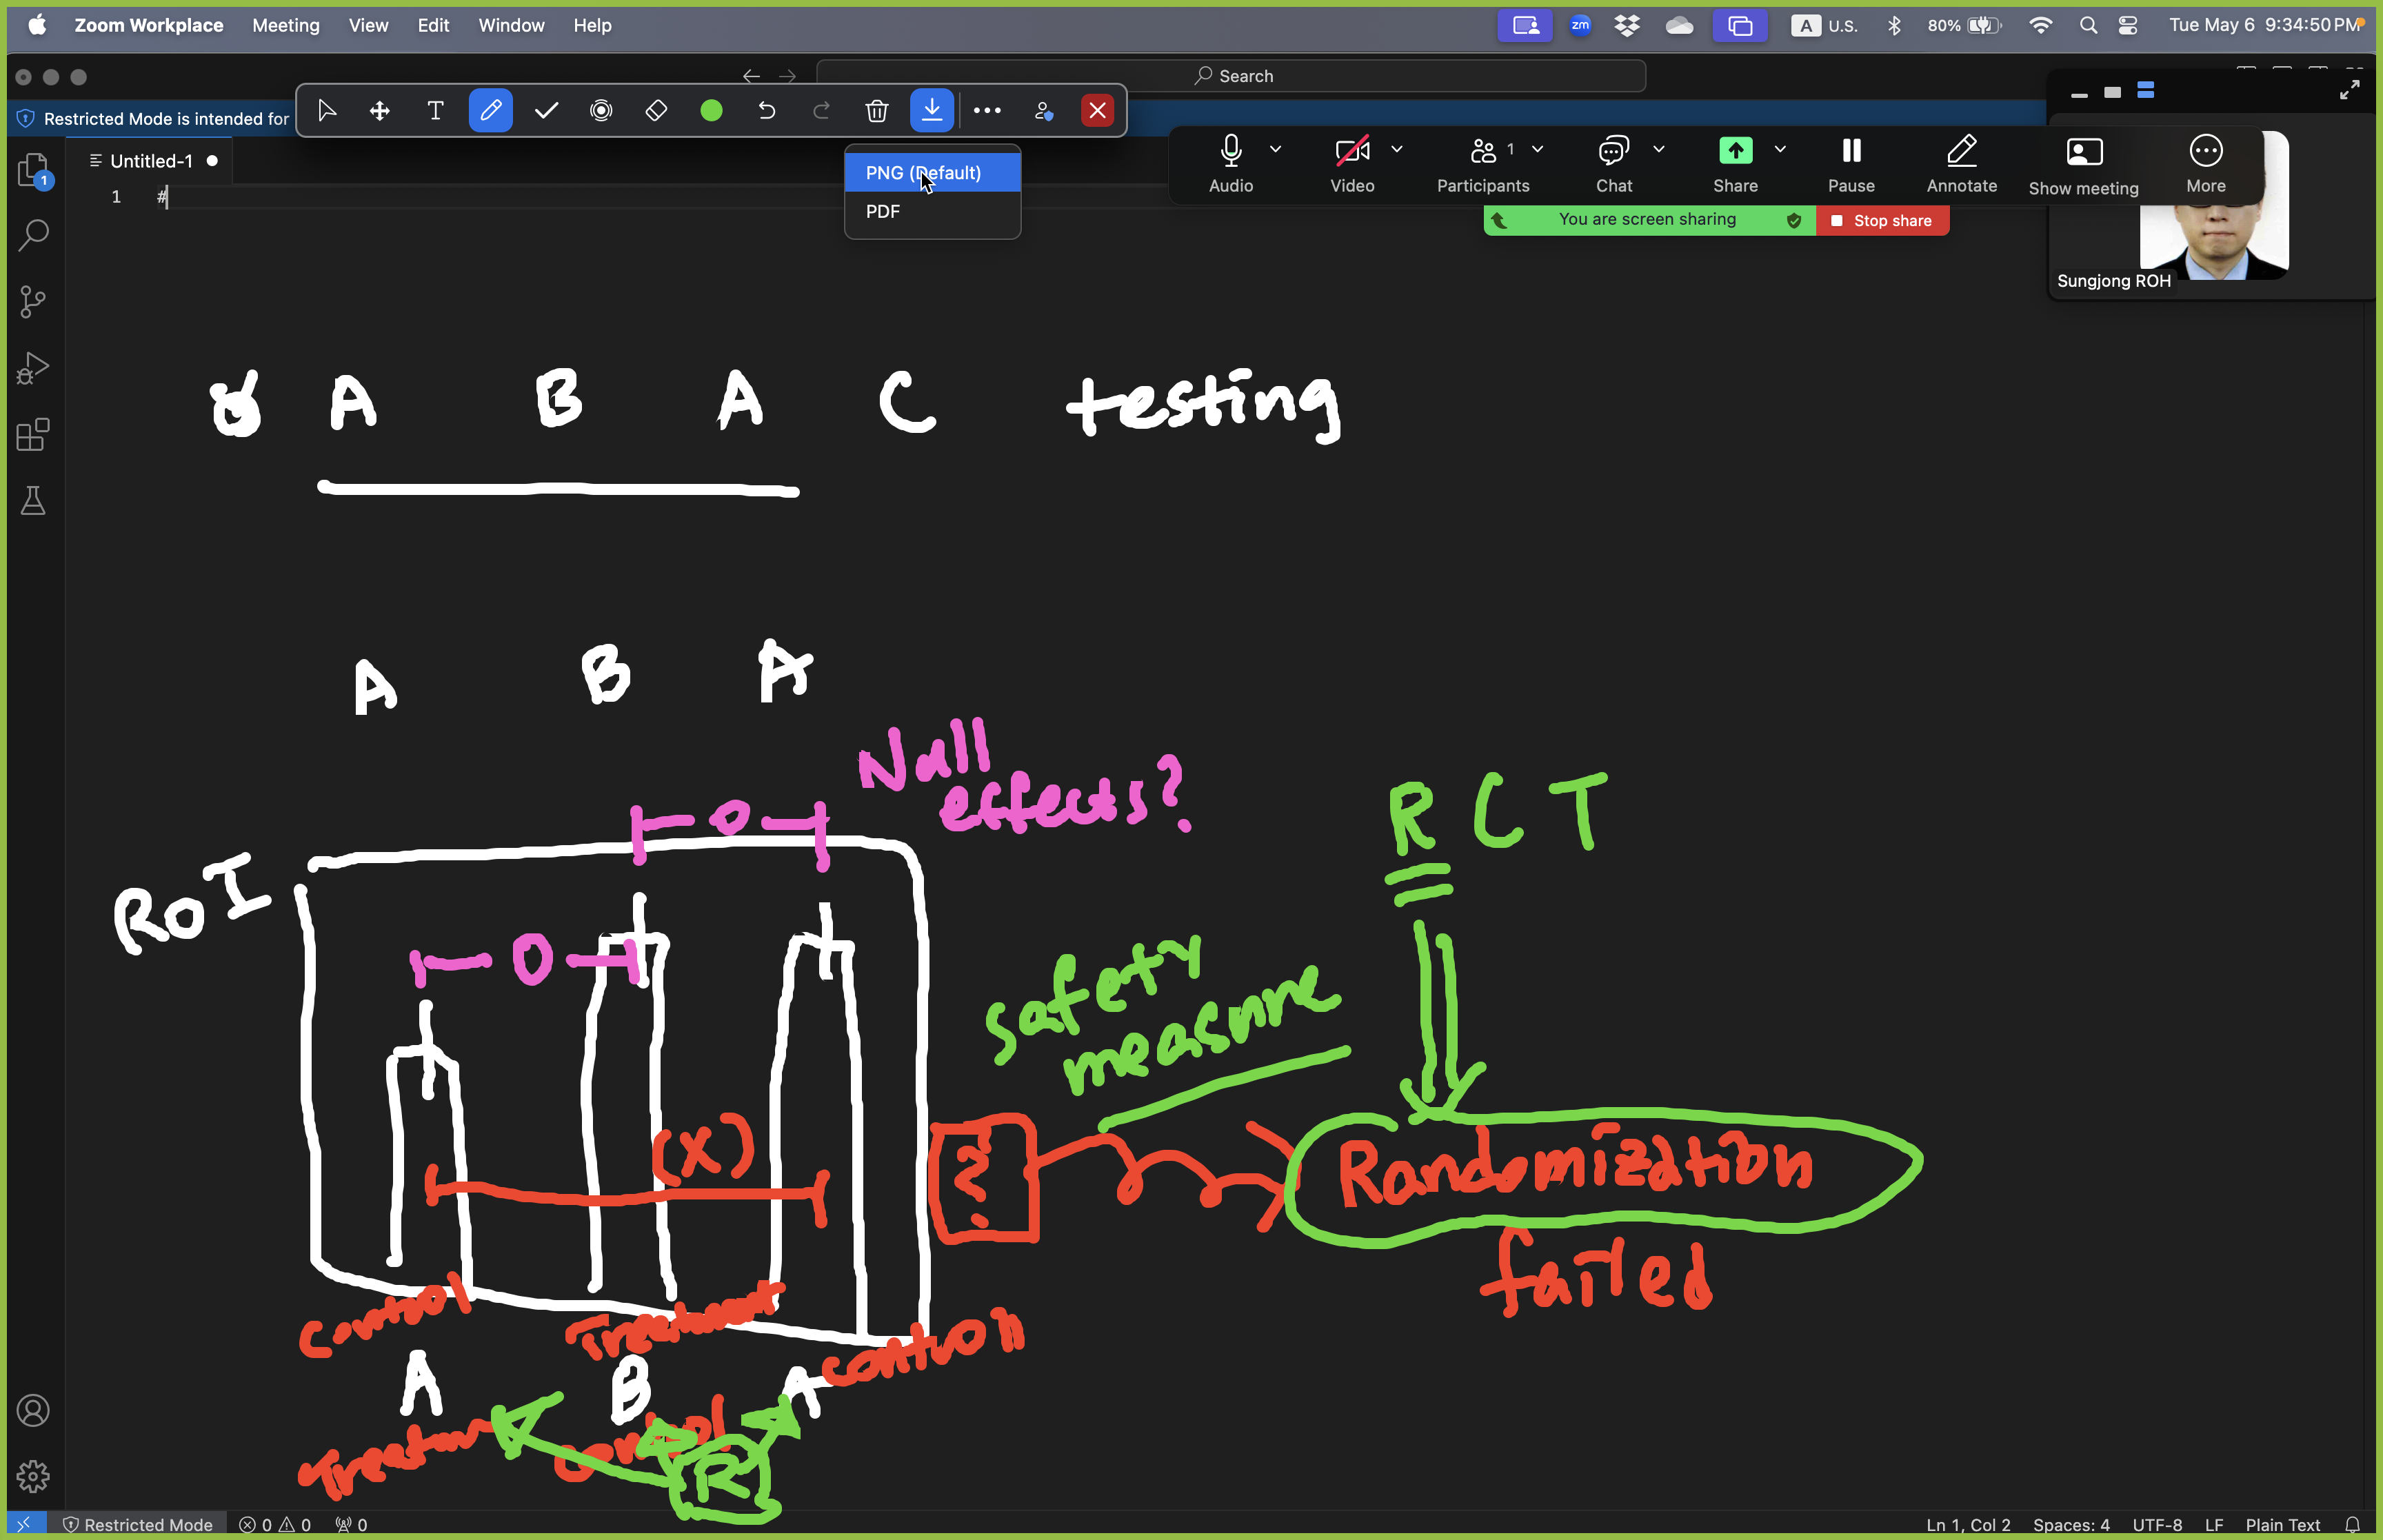 Zoom Workplace Meeting View Edit Window Help
zm A U.S. 80% Tue May 6 9:34:50 PM
Search
Restricted Mode is intended for
Untitled-1
1 #
PNG (Default)
PDF
Audio Video Participants 1 Chat Share Pause Annotate Show meeting More
You are screen sharing Stop share
Sungjong ROH
A B A C testing
A B A
Null
effects?
R C T
RoI
0
0
safety
measure
(X)
Randomization
failed
Control Treatment control
A B A
R
Restricted Mode 0 0 0
Ln 1, Col 2 Spaces: 4 UTF-8 LF Plain Text